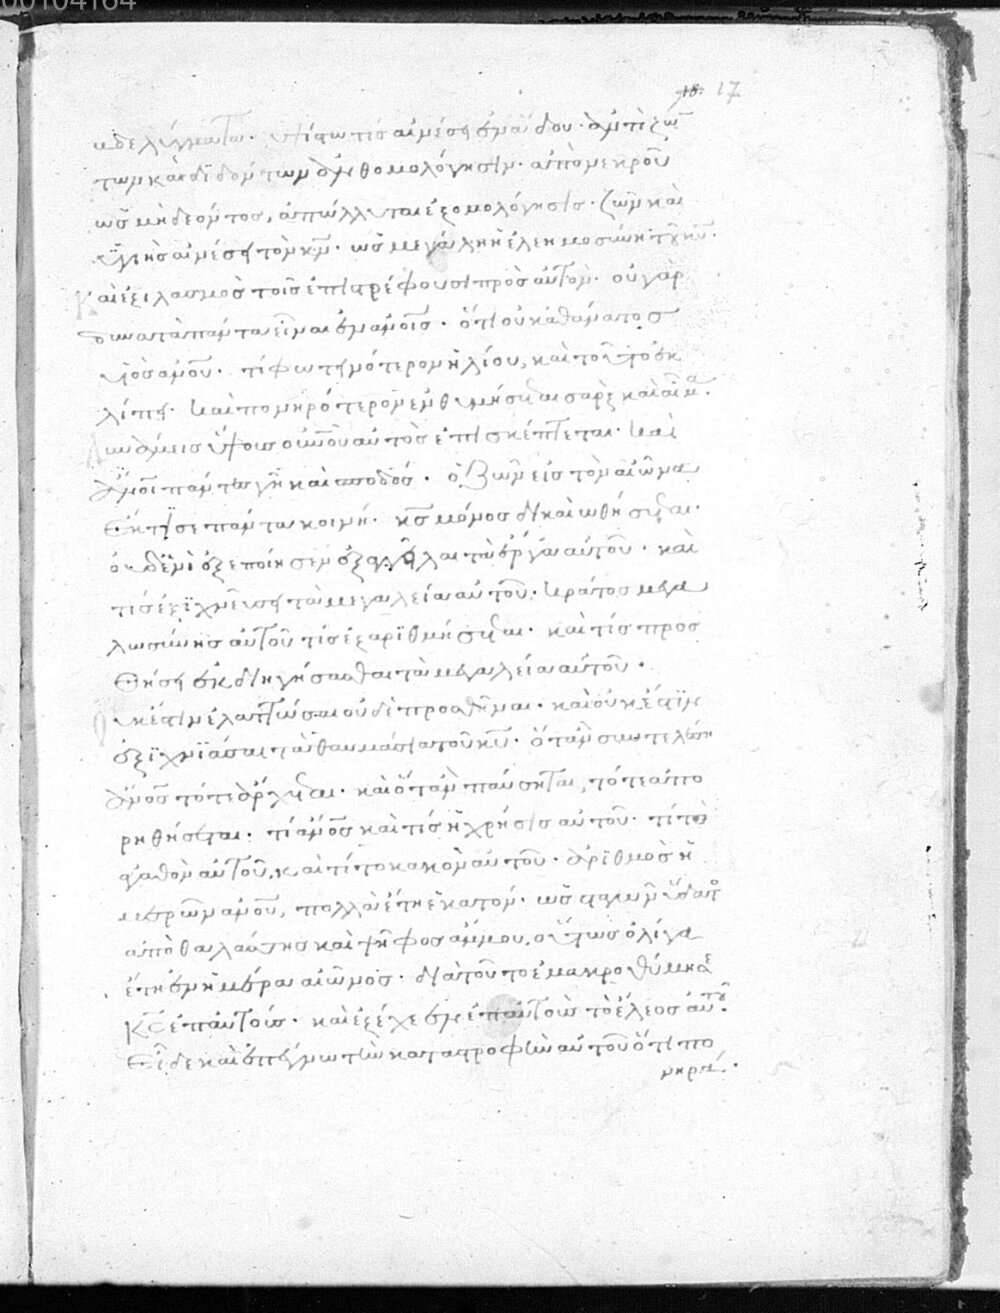 00104164
18. 17
βδελύγματα. ὑψίστω τίς αἰνέσει ἐν ἅδου. ἀντὶ ζών
των καὶ διδόντων ἀνθομολόγησιν. ἀπὸ νεκροῦ
ὡς μηδε ὄντος, ἀπόλλυται ἐξομολόγησις. ζῶν καὶ
ὑγιὴς αἰνέσει τὸν κν. ὡς μεγάλη ἡ ἐλεημοσύνη τοῦ κυ.
Καὶ ἐξιλασμὸς τοῖς ἐπιστρέφουσι πρὸς αὐτόν. οὐ γὰρ
δύναται πάντα εἶναι ἐν ανοις. ὅτι οὐκ ἀθάνατος
υἱὸς ανου. τί φωτεινότερον ἡλίου, καὶ τοῦτο ἐκ
λίπει. καὶ πονηρότερον ἐνθυμήσεται σαρξ καὶ αἷμα.
Δύναμεις ὕψους οὐνοῦ αὐτὸς ἐπισκέπτεται. καὶ
ανοι πάντες γῆ καὶ σποδός. ὁ ζῶν εἰς τὸν αἰῶνα
ἔκτισε πάντα κοινῇ. κς μόνος δικαιωθήσεται.
οὐδενὶ ἐξεποίησεν ἐξαγγεῖλαι τὰ ἔργα αὐτοῦ. καὶ
τίς ἐξιχνεύσει τὰ μεγαλεῖα αὐτοῦ. κράτος μεγα
λωσύνης αὐτοῦ τίς ἐξαριθμήσεται. καὶ τίς προσ
θήσει ἐκδιηγήσασθαι τὰ μεγαλεῖα αὐτοῦ.
Οὐκ ἔστιν ἐλαττῶσαι οὐδὲ προσθεῖναι. καὶ οὐκ ἔστιν
ἐξιχνιάσαι τὰ θαυμάσια τοῦ κυ. ὅταν συντελέσῃ
ανος τότε ἄρχεται. καὶ ὅταν παύσηται, τότε ἀπο
ρηθήσεται. τί ανος καὶ τίς ἡ χρῆσις αὐτοῦ. τί τὸ
ἀγαθὸν αὐτοῦ, καὶ τί τὸ κακὸν αὐτοῦ. ἀριθμὸς ἡ
μερῶν ανου, πολλὰ ἔτη ἑκατόν. ὡς σταγὼν ὕδατος
ἀπὸ θαλάσσης καὶ ψῆφος ἄμμου, οὕτως ὀλίγα
ἔτη ἐν ἡμέρα αἰῶνος. διὰ τοῦτο ἐμακροθύμησε
κς ἐπ' αὐτοῖς. καὶ ἐξέχεεν ἐπ' αὐτοὺς τὸ ἔλεος αὐτοῦ.
Εἶδε καὶ ἐπέγνω τὴν καταστροφὴν αὐτοῦ ὅτι πο
νηρά.